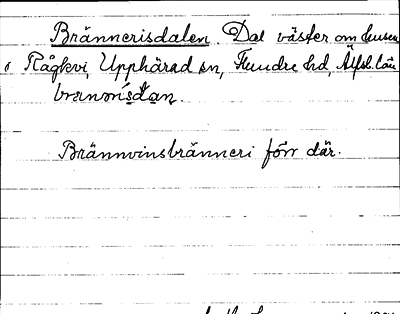 Brännerisdalen. Dal väster om husen
i Rågtvi, Upphärad sn, Flundre hd, Älfsb. län
Brännvinsbränneri förr där.